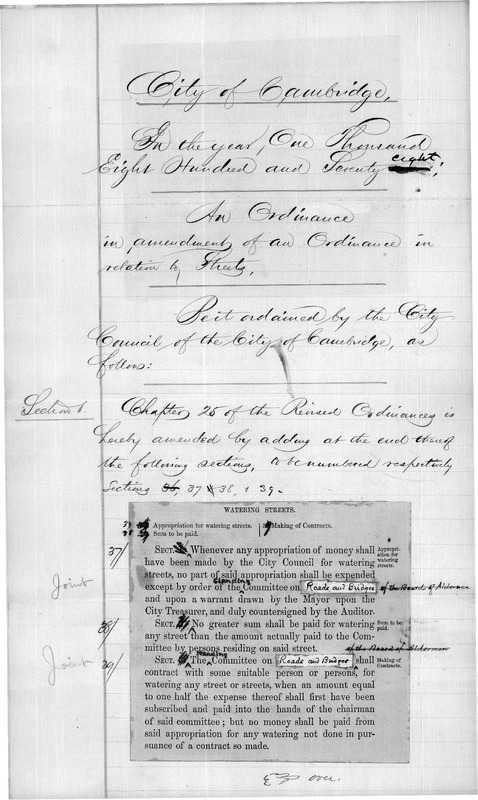 City of Cambridge,
In the year, One Thousand
Eight Hundred and Seventy eight;
An Ordinance
in amendment of an Ordinance in
relation to Streets,
Be it ordained by the City
Council of the City of Cambridge, as
follows:
Section 1. Chapter 25 of the Revised Ordinances is
hereby amended by adding at the end thereof
the following sections, to be numbered respectively
sections 36, 37 & 38, & 39.
WATERING STREETS.
37 Appropriation for watering streets. 39 Making of Contracts.
38 Sum to be paid.
37/ SECT. Whenever any appropriation of money shall
have been made by the City Council for watering
streets, no part of said appropriation shall be expended
Joint except by order of the Standing Committee on Roads and Bridges of the Board of Aldermen
and upon a warrant drawn by the Mayor upon the
City Treasurer, and duly countersigned by the Auditor.
Appropri-
ation for
watering
streets.
38/ SECT. No greater sum shall be paid for watering
any street than the amount actually paid to the Com-
mittee by persons residing on said street.
Sum to be
paid.
Joint
39/ SECT. The Standing Committee on Roads and Bridges of the Board of Aldermen shall
contract with some suitable person or persons, for
watering any street or streets, when an amount equal
to one half the expense thereof shall first have been
subscribed and paid into the hands of the chairman
of said committee; but no money shall be paid from
said appropriation for any watering not done in pur-
suance of a contract so made.
Making of
Contracts.
over.